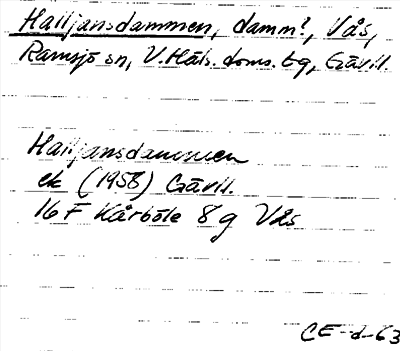 Halljansdammen, damm?, Vås,
Ramsjö sn, V. Häls. doms. tg, Gävl.
Halljansdammen
ek (1958) Gävl.
16 F Kårböle 8 g Vås
CE-d-63